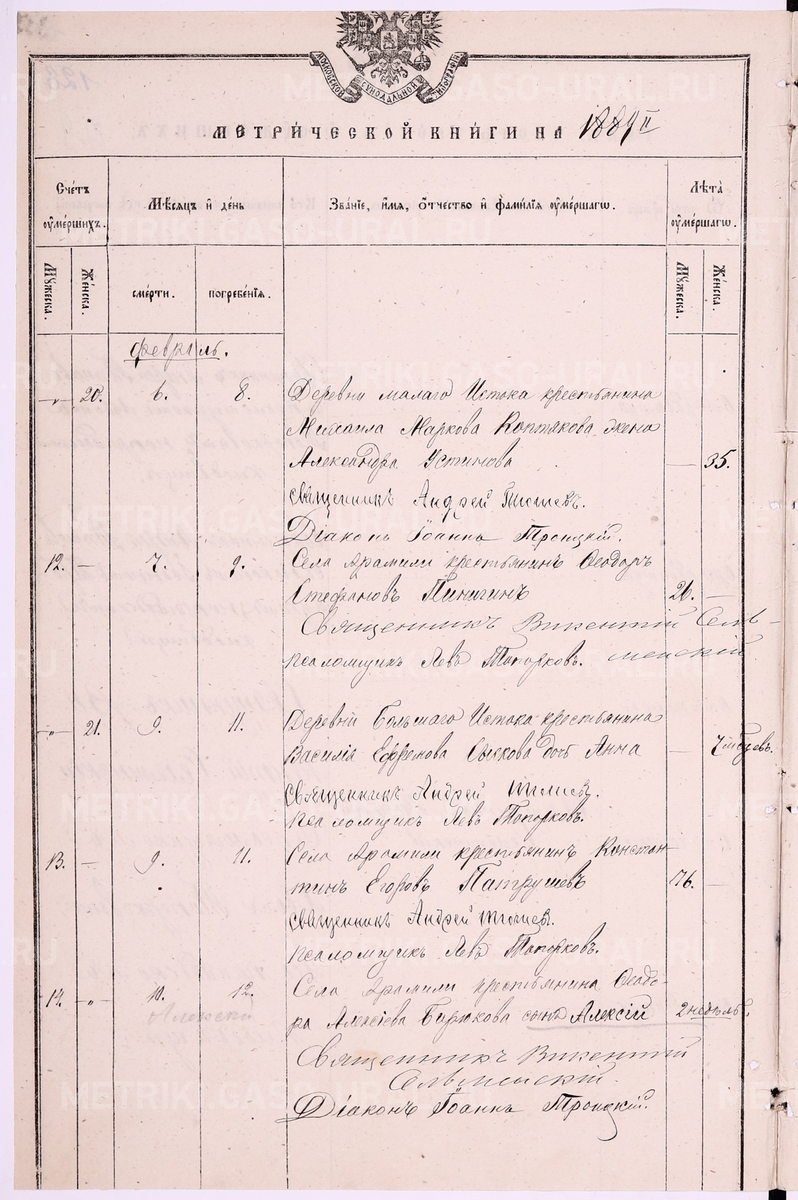 МОСКОВСКОЙ СѴНОДАЛЬНОЙ ТИПОГРАФІИ
МЕТРИ́ЧЕСКОЙ КНИ́ГИ НА 1889 II
Сче́тъ ᲂу҆ме́ршихъ.
Мѣ́сяцъ и҆ де́нь
Зва́нїе, и҆́мѧ, ѻ҆́тчество и҆ фами́лїѧ ᲂу҆ме́ршагѡ.
Лѣ́та ᲂу҆ме́ршагѡ.
Мꙋ́жеска.
Же́нска.
сме́рти.
погребе́нїѧ.
Мꙋ́жеска.
Же́нска.
Февраль.
-"- 20. 6. 8. Деревни малаго Истока крестьянина
Михаила Маркова Коптякова жена
Александра Устинова — 35.
Священникъ Андрей
Діаконъ Іоаннъ Троицкій.
12. — 7. 9. Села Арамили крестьянинъ Ѳеодоръ
Стефановъ Пинигинъ 26. —
Священникъ Викентій Сель-
менскій
Псаломщикъ Левъ Топорковъ.
-"- 21. 9. 11. Деревни Большаго Истока крестьянина
Василія Ефремова дочь Анна —
Священникъ Андрей
Псаломщикъ Левъ Топорковъ.
13. — 9. 11. Села Арамили крестьянинъ Констан-
тинъ Егоровъ Патрушевъ 76. —
Священникъ Андрей
Псаломщикъ Левъ Топорковъ.
14. -"- 10. 12. Села Арамили крестьянина Ѳеодо-
ра Алексіева Бирюкова сынъ Алексій 2 недѣль.
Священникъ Викентій
Сельменскій.
Діаконъ Іоаннъ Троицкій.
METRIKI.GASO-URAL.RU